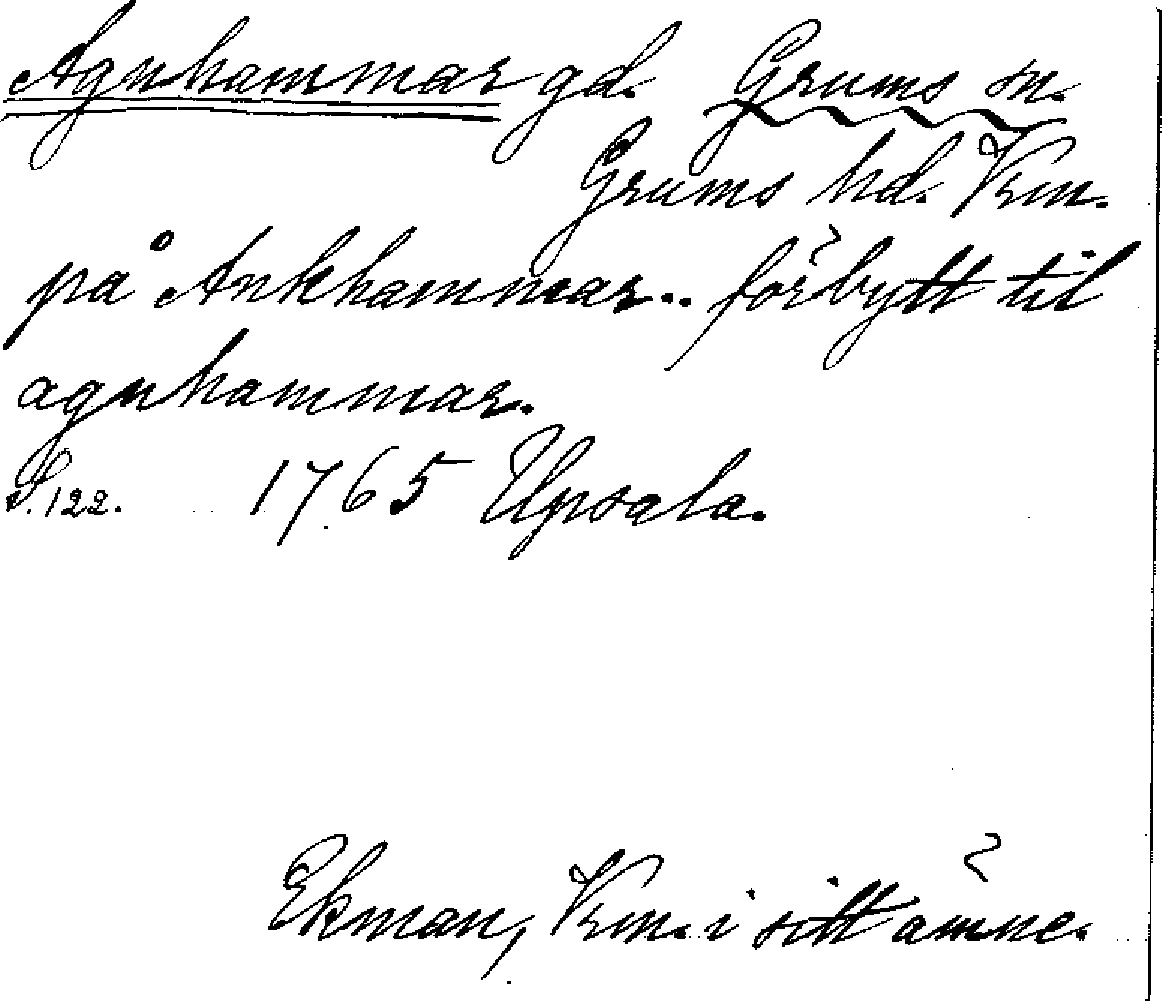 Agnhammar gd. Grums sn.
Grums hd. Vrm.
på Ankhammar.. förbytt til
agnhammar.
S. 122. 1765 Upsala.
Ekman, Vrm. i sitt ämne.